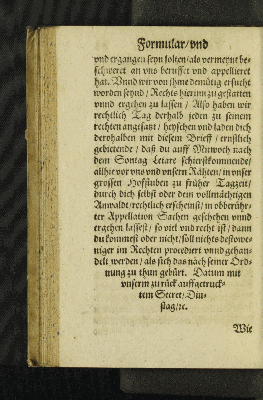 Formular/vnd
vnd ergangen seyn solten/als vermeynt be-
schweret an vns beruffet vnd appellieret
hat. Vnnd wir von jhme demütig ersucht
worden seynd/Rechts hierinn zu gestatten
vnnd ergehen zu lassen/Also haben wir
rechtlich Tag derhalb jeden zu seinem
rechten angesatzt/heyschen vnd laden dich
derohalben mit diesem Brieff/ernstlich
gebietende/daß du auff Mitwoch nach
dem Sontag Letare schierstkommende/
allhie vor vns vnd vnsern Rähten/in vnser
grossen Hofstuben zu früher Tagzeit/
durch dich selbst oder dem vollmächtigen
Anwaldt/rechtlich erscheinst/in obberühr-
ter Appellation Sachen geschehen vnnd
ergehen lassest/so viel vnd recht ist/dann
du kommest oder nicht/soll nichts destowe-
niger im Rechten procediert vnnd gehan-
delt werden/als sich das nach seiner Ord-
nung zu thun gebürt. Datum mit
vnserm zu rück auffgetruck-
tem Secret/Din-
stag/rc.
Wie